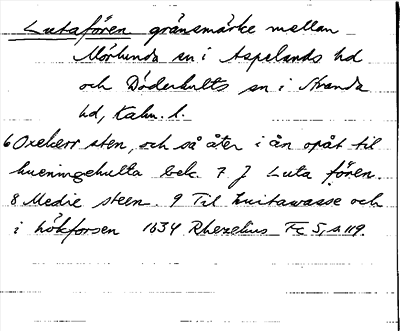 Lutafören gränsmärke mellan
Mörlunda sn i Aspelands hd
och Döderhults sn i Stranda
hd, Kalm. l.
6 Oxekerr sten, och så åter i ån opåt til
hueningehulta bek. 7 J Luta fören.
8 Medie steen. 9 Til huitawasse och
i hökforsen 1634 Rhezelius Fc 5, s 119.